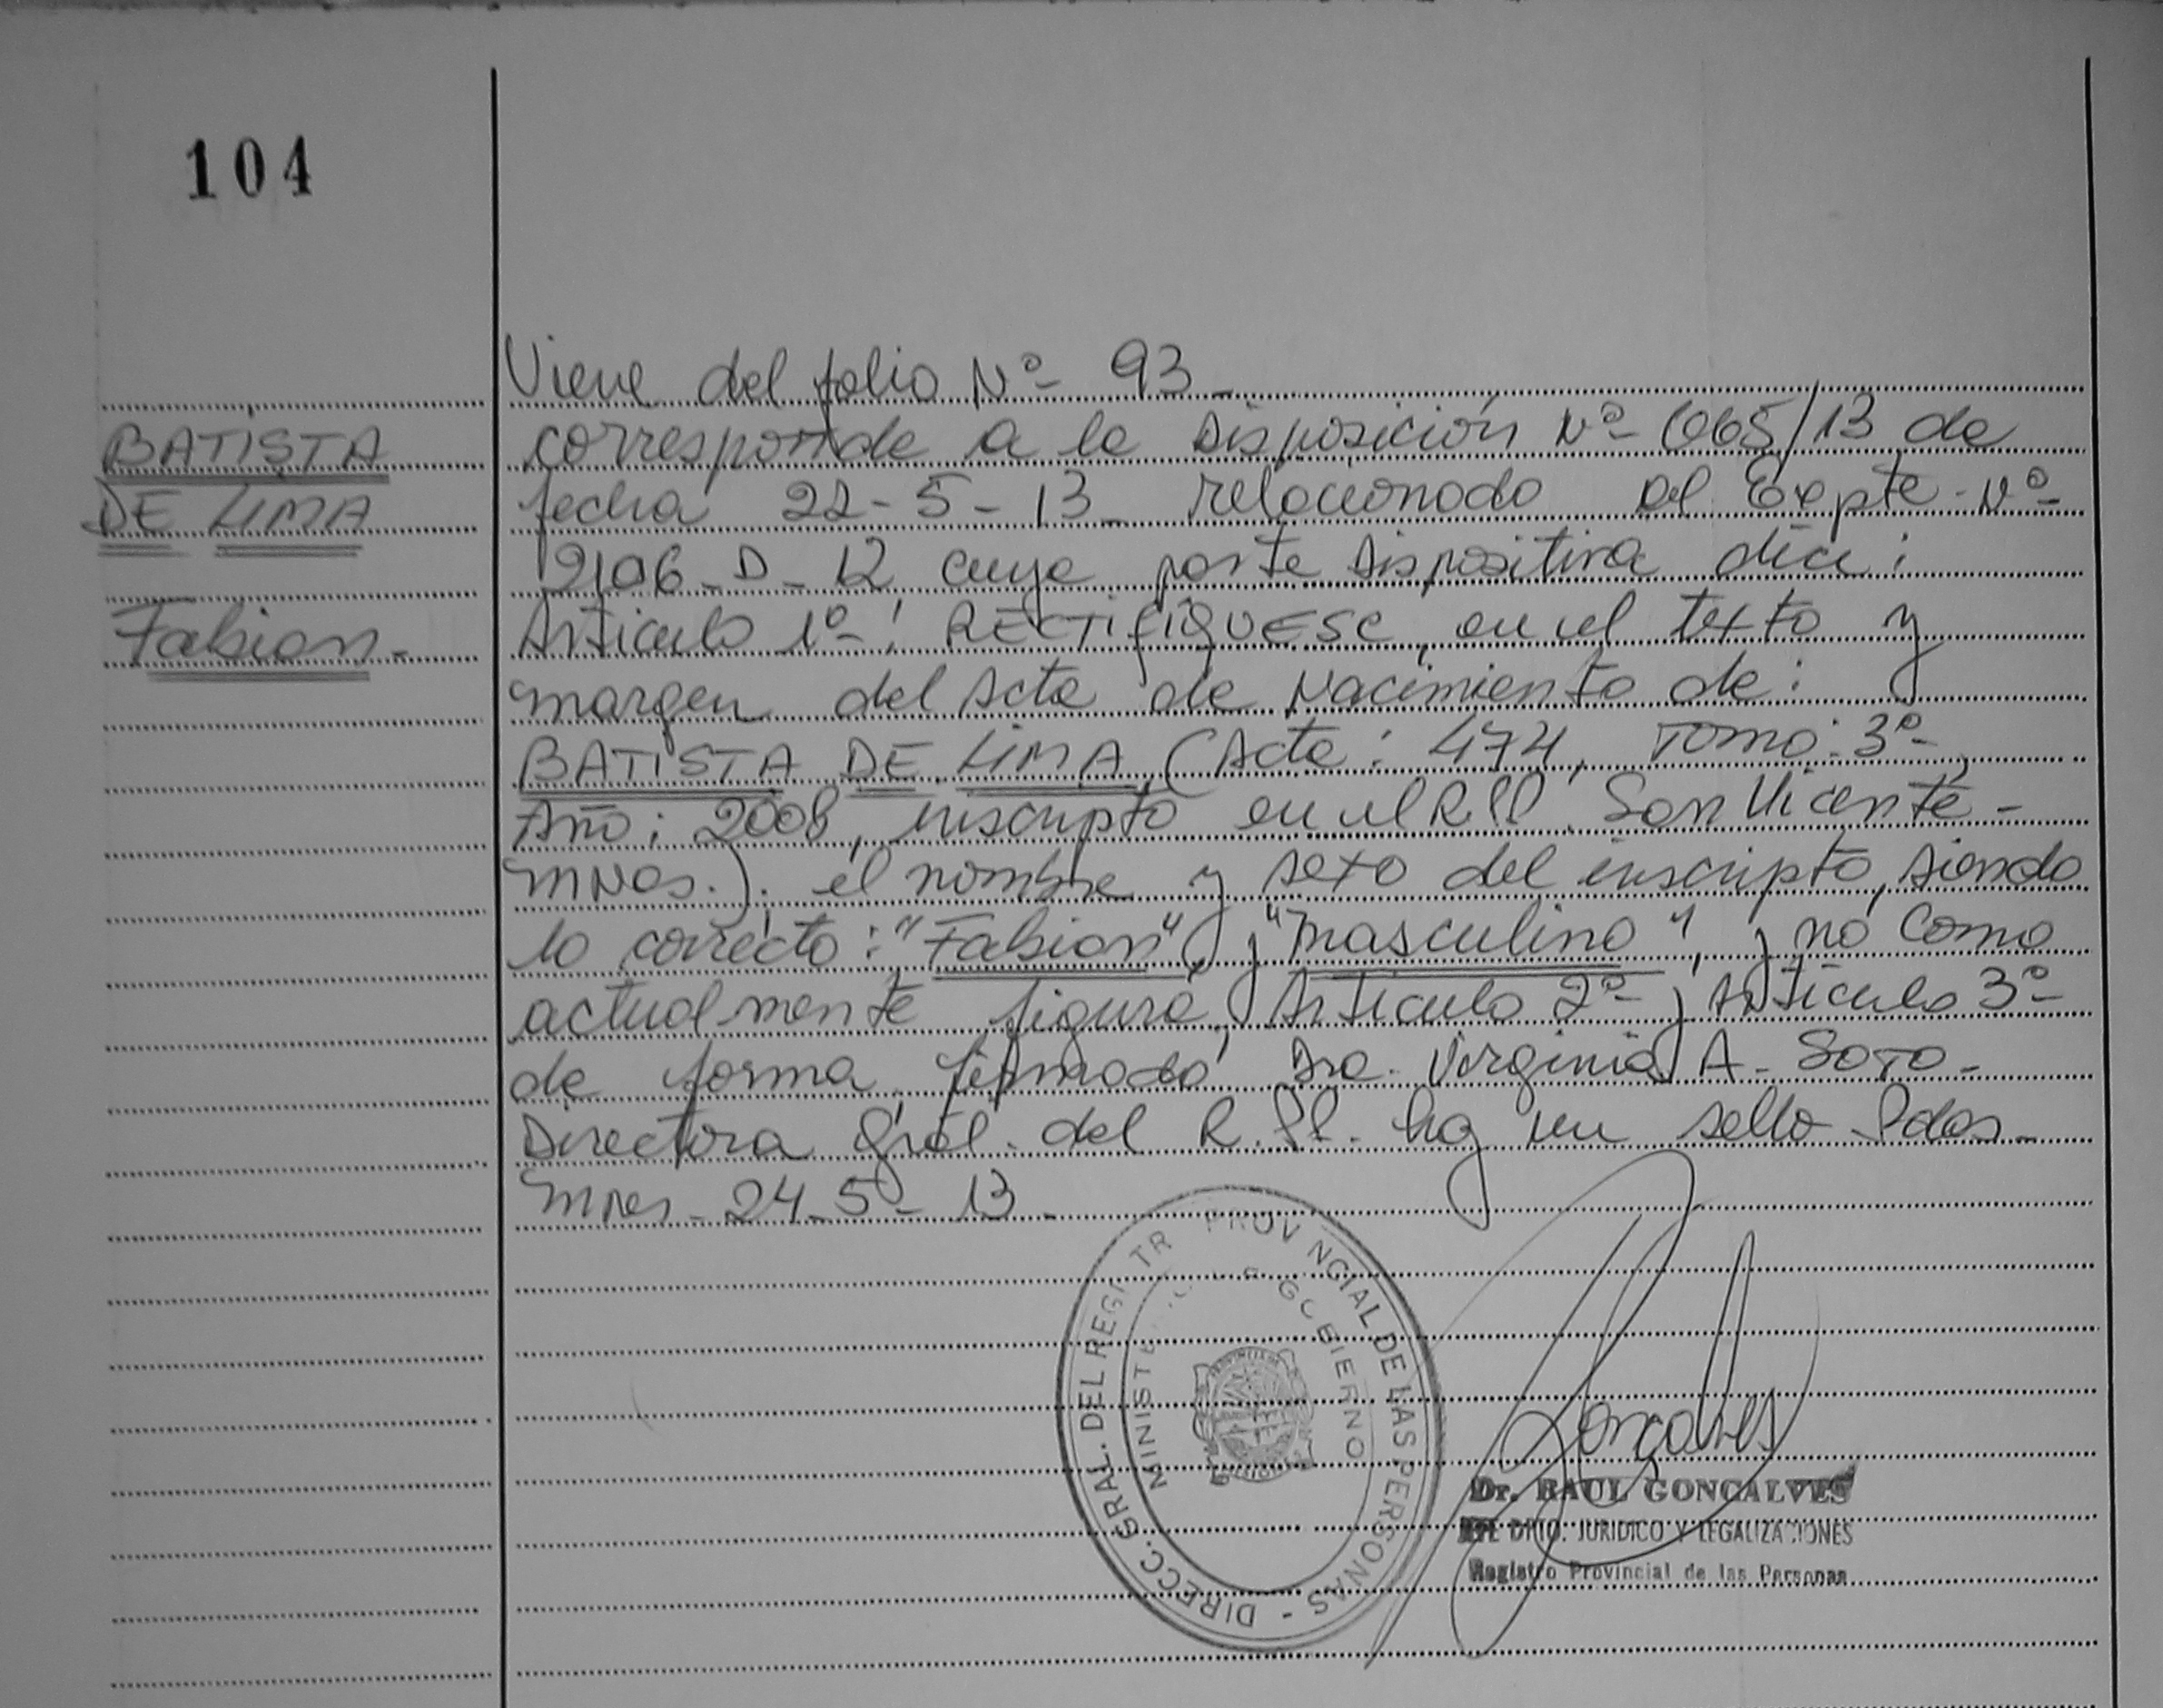 104
Viene del folio Nº- 93-
BATISTA
DE LIMA
Fabian-
corresponde a la Disposición Nº- 1065/13 de
fecha 22-5-13- relacionado al Expte-Nº-
2106-D-12 cuya parte dispositiva dice:
Articulo 1º-: RECTIFIQUESE, en el texto y
margen del Acta de Nacimiento de:
BATISTA DE LIMA (Acta: 474, Tomo: 3º-
Año: 2008, inscripto en el R.P.P. San Vicente-
MNOS.): el nombre y sexo del inscripto, siendo
lo correcto: "Fabian" y "masculino", y no como
actualmente figura, Articulo 2º- y Articulo 3º-
de forma, firmado Dra. Virginia A- SOTO-
Directora Gral. del R.P.P. hay un sello Pdas-
Mnes- 24-5-13-
DIRECC. GRAL. DEL REGI TR PROV NCIAL DE LAS PERSONAS -
MINIST GOBIERNO
Goncalves
Dr. RAUL GONCALVES
DPTO. JURIDICO Y LEGALIZACIONES
Registro Provincial de las Personas